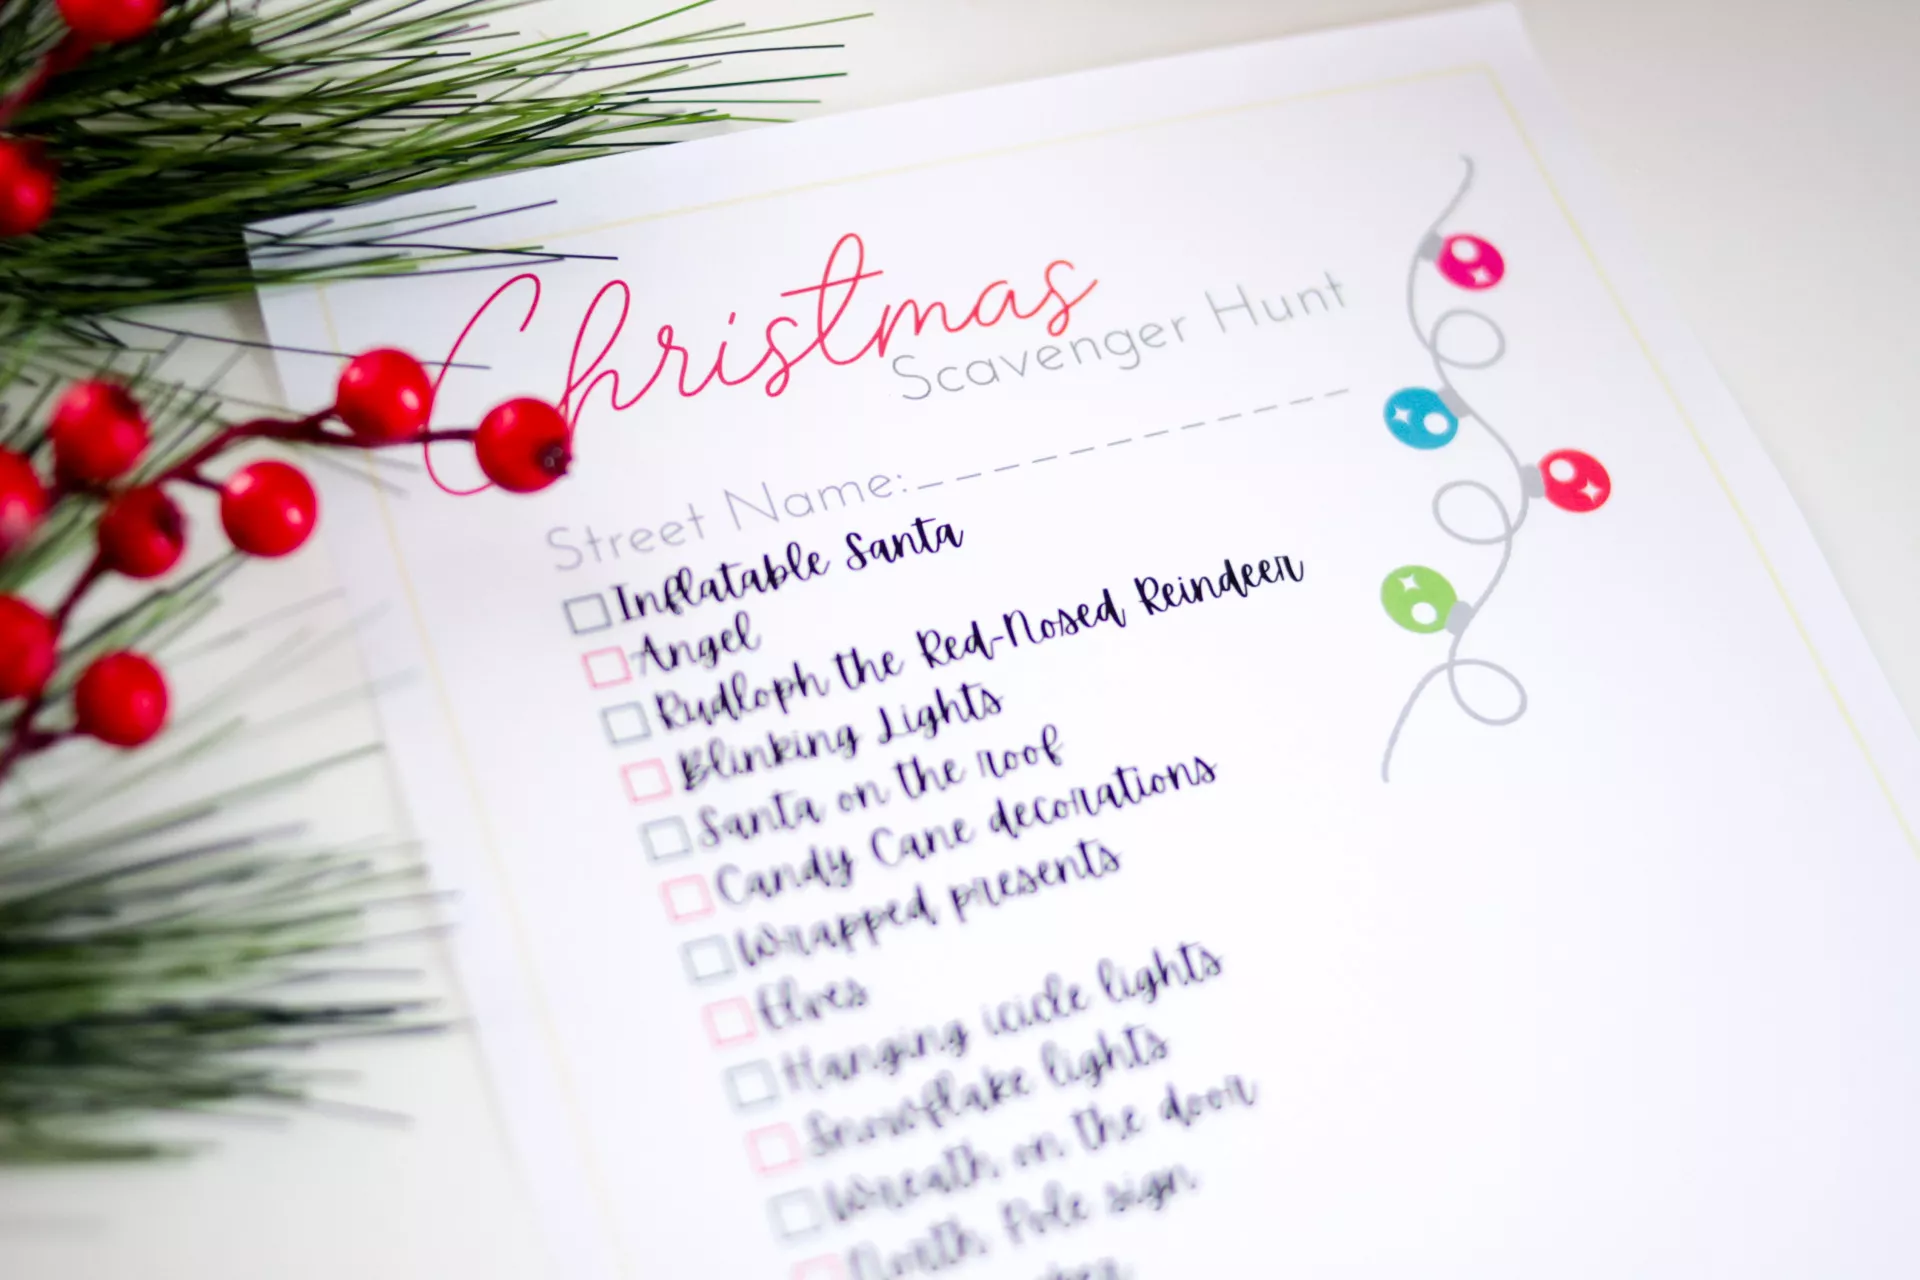 Christmas
Scavenger Hunt
Street Name:
Inflatable Santa
Angel
Rudloph the Red-Nosed Reindeer
Blinking Lights
Santa on the roof
Candy Cane decorations
Wrapped presents
Elves
Hanging icicle lights
Snowflake lights
Wreath on the door
North Pole sign